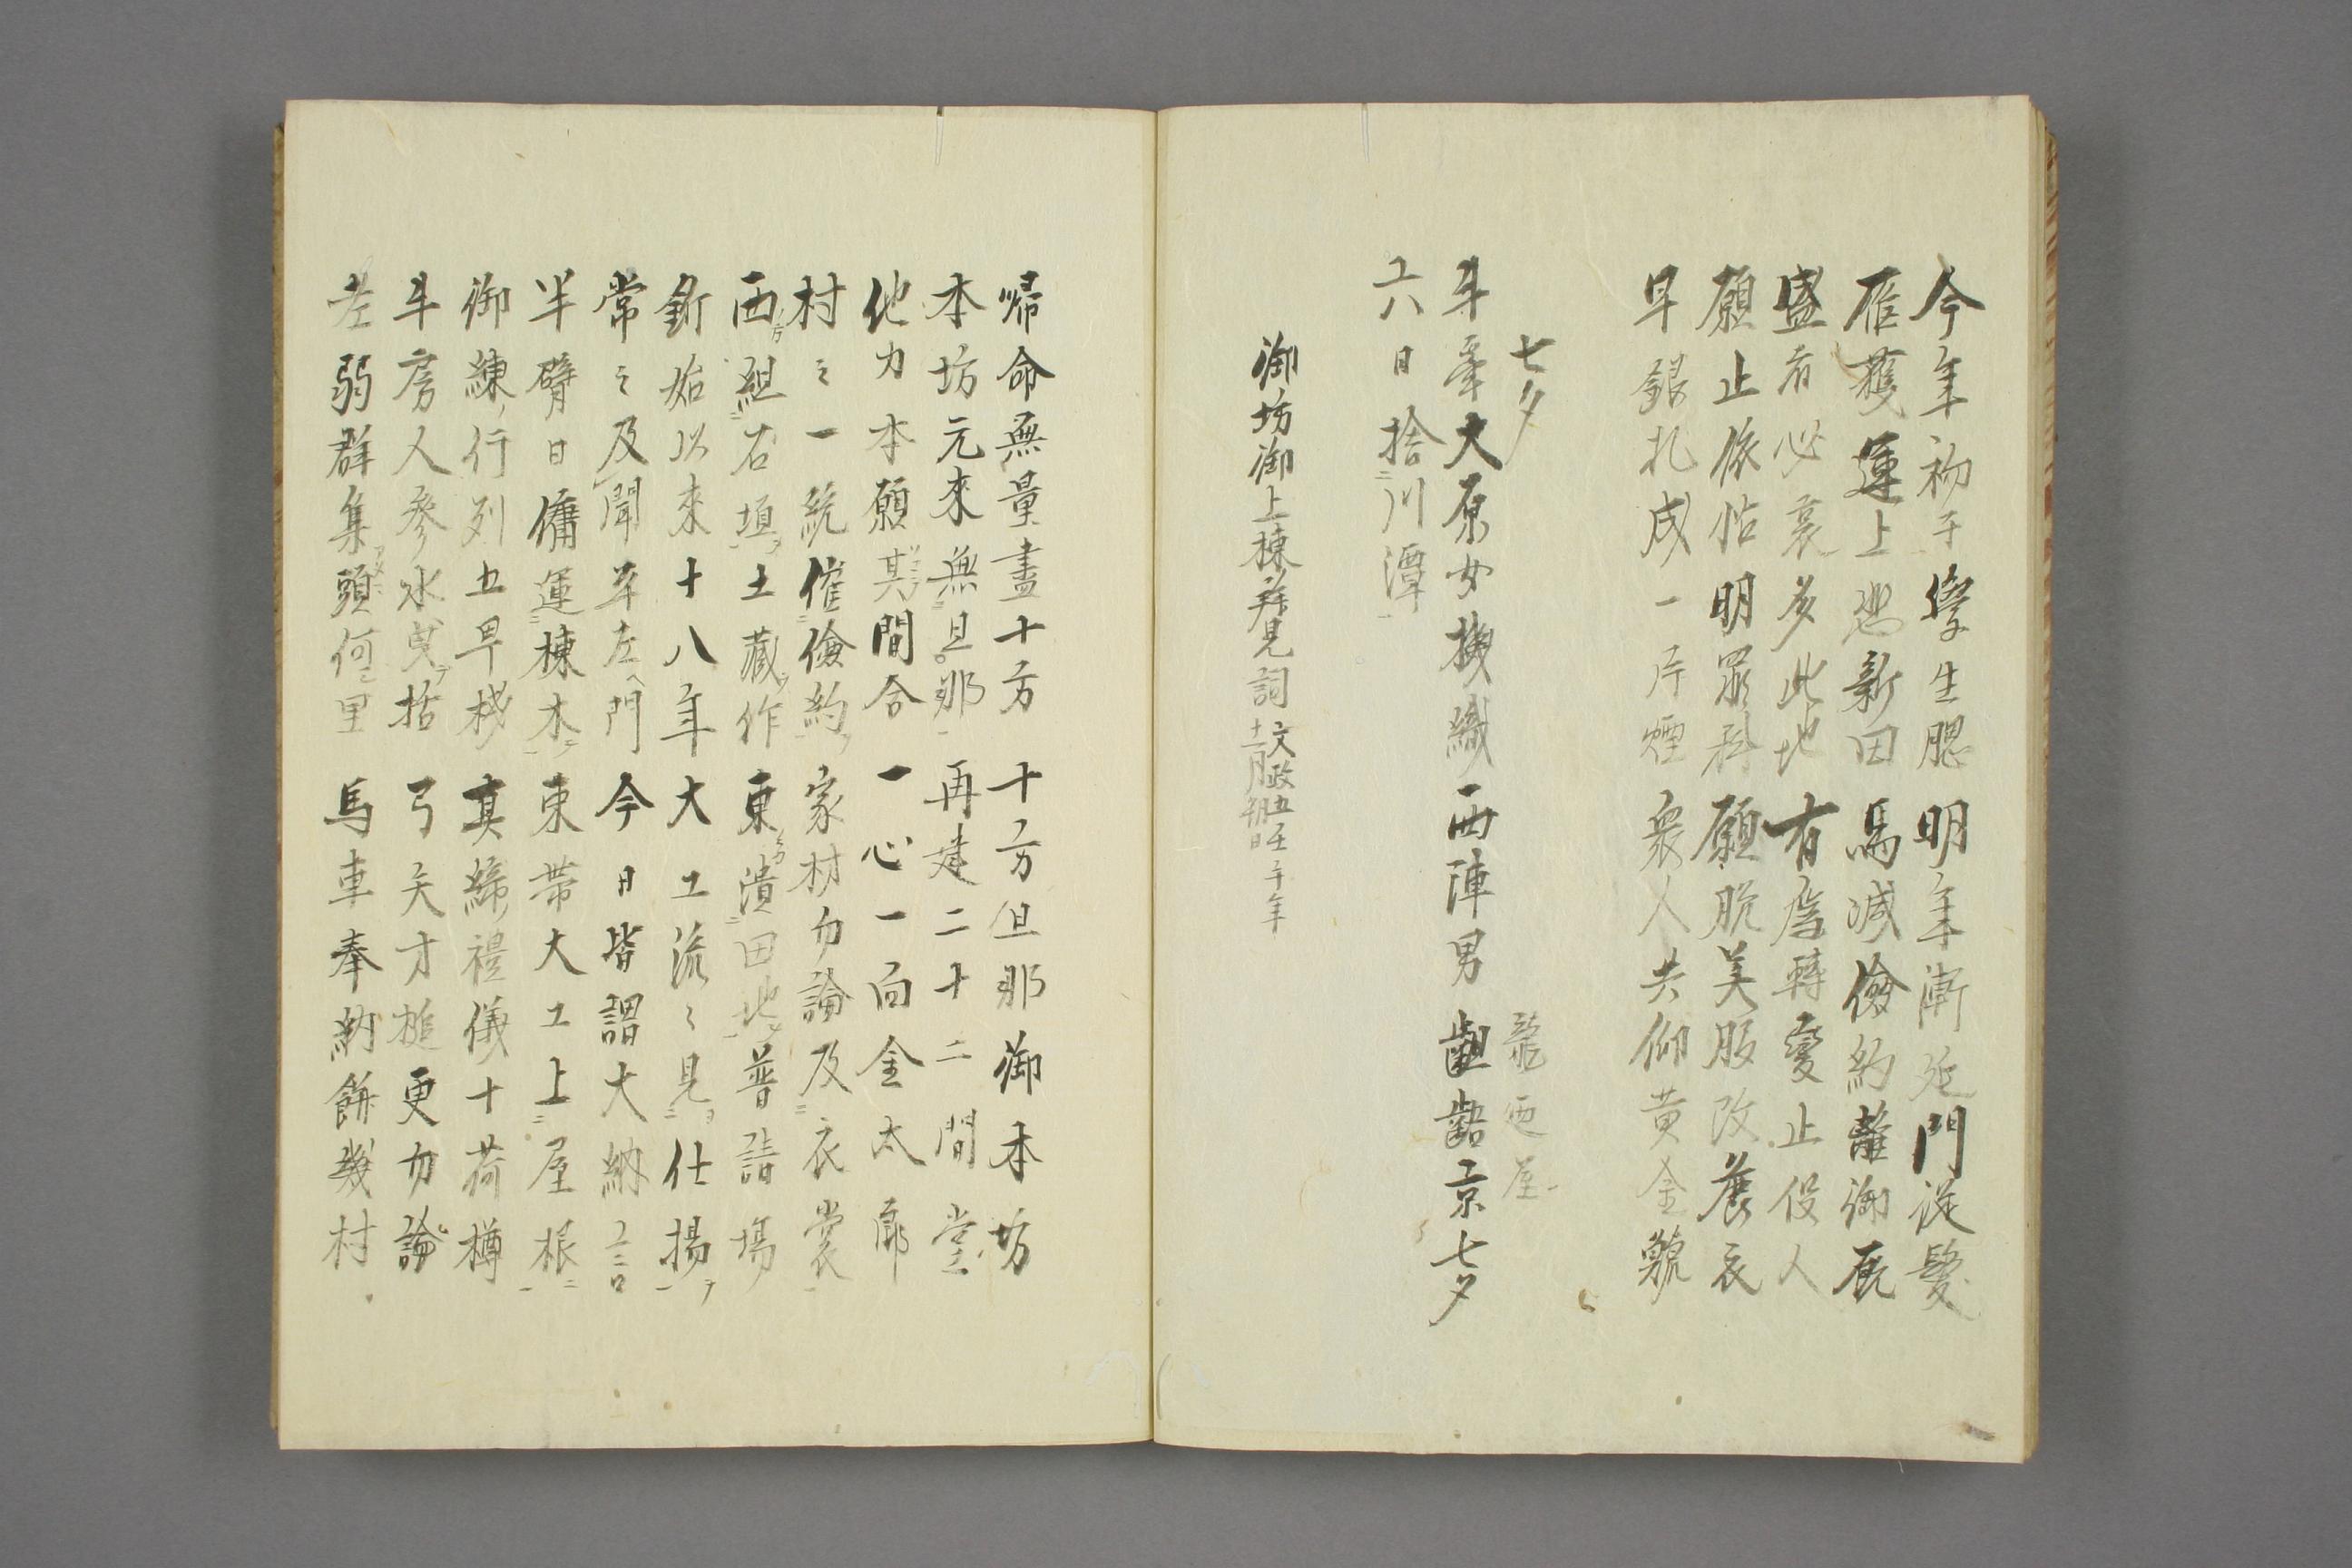 今年初于學生腮　明年漸延門淀髮
雁護運上怨新田　馬減儉約離御厩
盛者必衰多此地　有為轉變止役人
願止依怙明眾科　願脱美服改麁衣
早銀札成一片煙　衆人共仰黄金貌
七夕
斗牽大原女機織西陣男齟齬京七夕
六日捨川潭
御坊御上棟拜見詞 文政五壬午年 十一月朔日
帰命無量盡十方　十方但那御本坊
本坊元來無旦那　再建二十二間堂
他力本願其間合　一心一向金太廊
村々一統催儉約　家材勿論及衣裳
西組右塤土藏作　東潰田地普請場
釿始以來十八年　大工流々見仕揚
常々及聞平左門　今日皆謂大納言
半臂日傭運棟木　束帯大工上屋根
御練行列五早桟　真締禮儀十荷樽
斗房人參水臾括　弓矢才槌更勿論
老弱群集頭何里　馬車奉納餅幾村